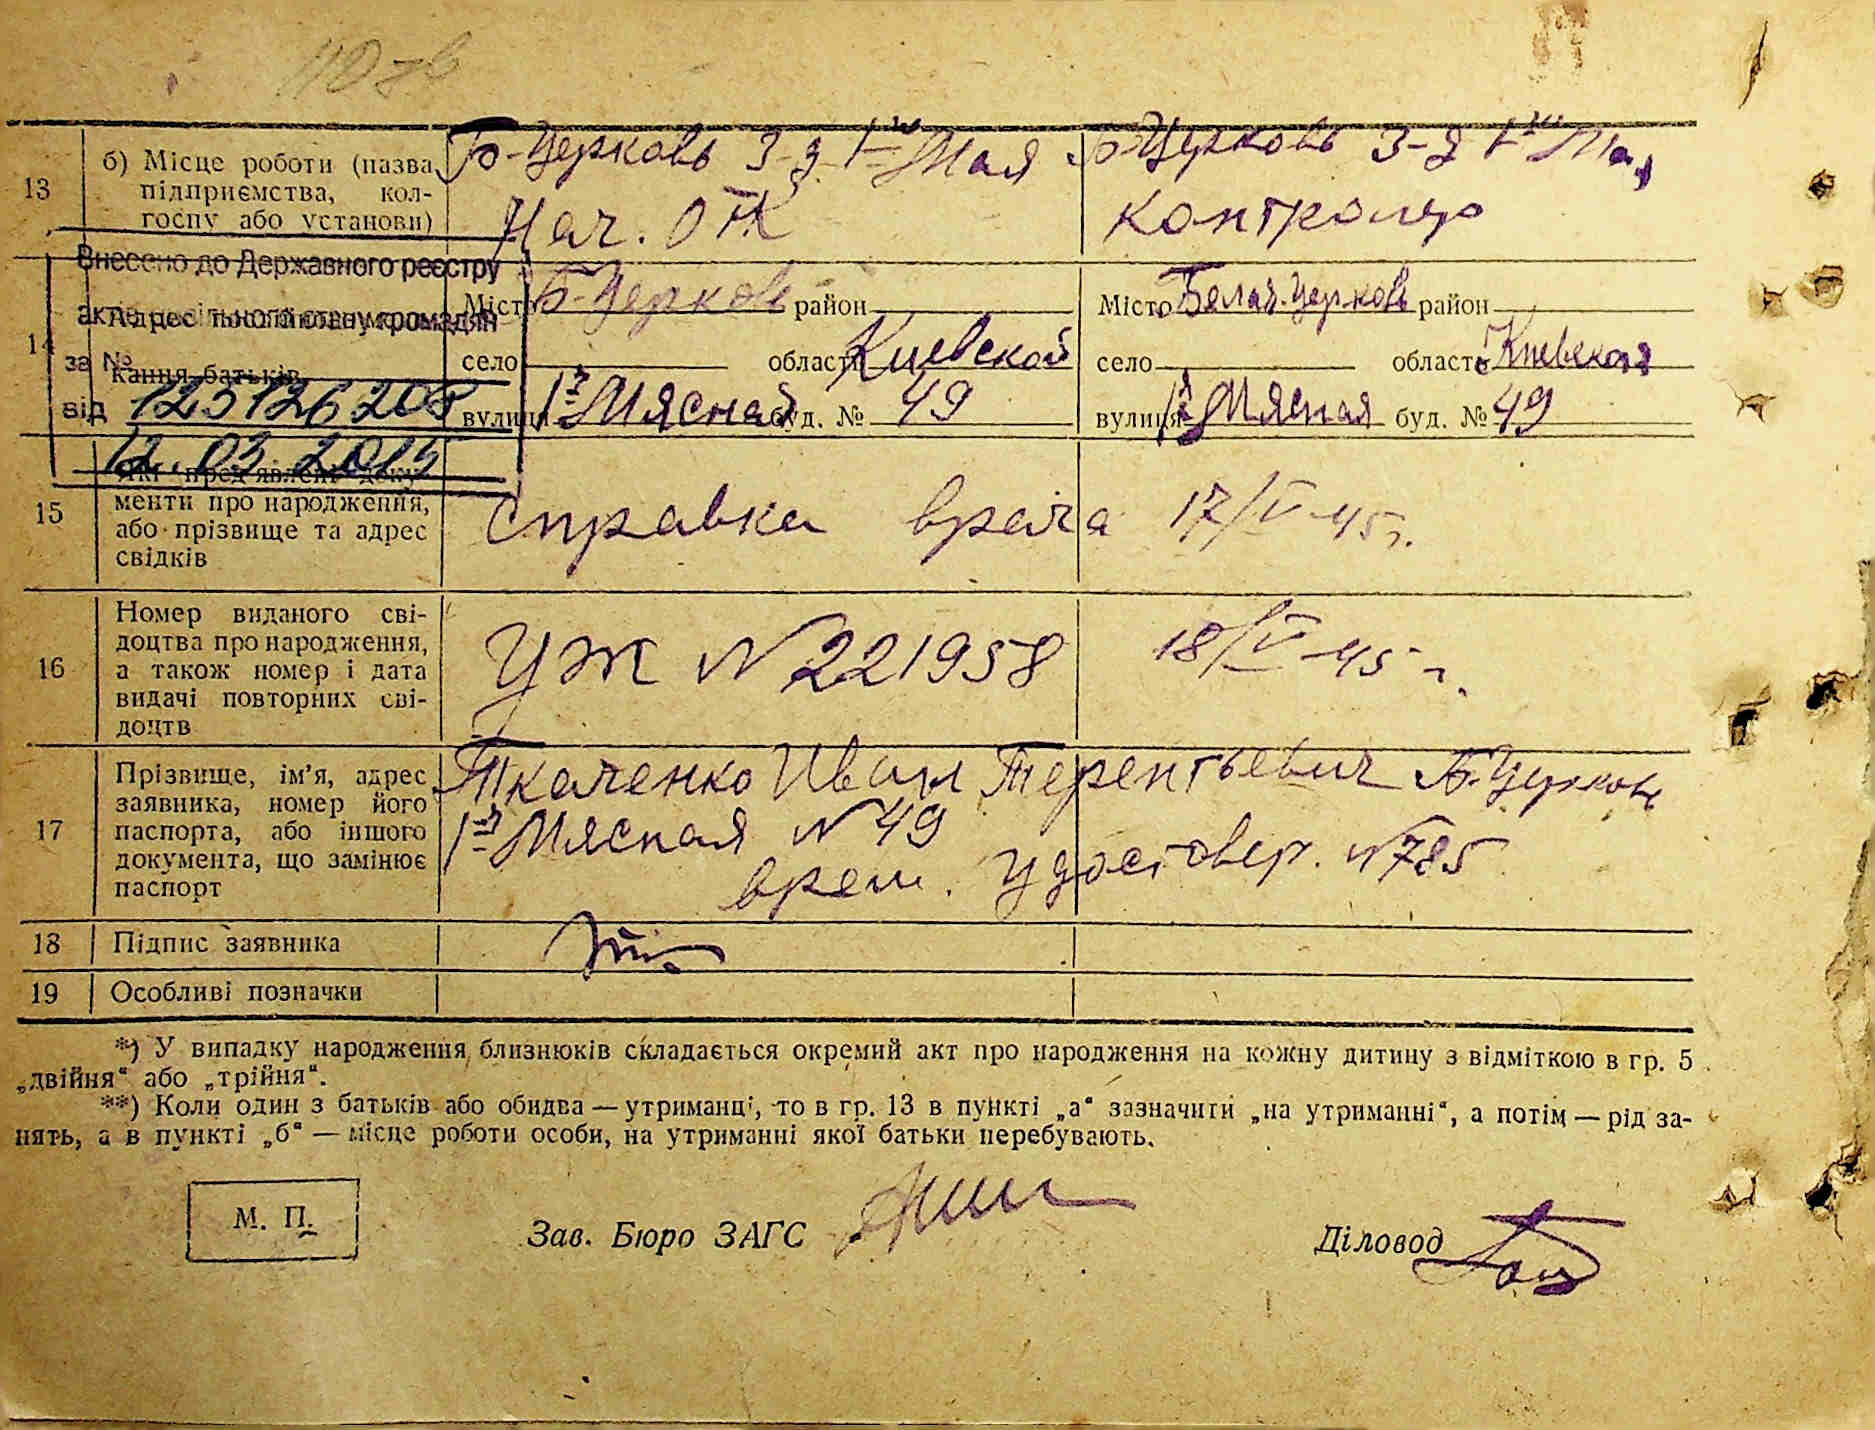 13
б) Місце роботи (назва
підприємства, кол-
госпу або установи)
Б-Церковь З-д 1го Мая
Нач. ОТК
Б-Церковь З-д 1го Мая
контролер
Внесено до Державного реєстру
актів цивільного стану громадян
за №
від 123126205
12.03.2015
14
кання батьків
Місто Б-Церковь район
село область Киевской
вулиця 1я Мясная буд. № 49
Місто Белая-Церковь район
село область Киевская
вулиця 1я Мясная буд. № 49
15
Які пред'явлені доку-
менти про народження,
або прізвище та адрес
свідків
Справка врача 17/V-45г.
16
Номер виданого сві-
доцтва про народження,
а також номер і дата
видачі повторних сві-
доцтв
УЖ N 221958 18/V-45 г.
17
Прізвище, ім'я, адрес
заявника, номер його
паспорта, або іншого
документа, що замінює
паспорт
Ткаченко Иван Терентьевич Б-Церковь
1я Мясная N 49
врем. удостовер. N 785
18 Підпис заявника
19 Особливі позначки
*) У випадку народження близнюків складається окремий акт про народження на кожну дитину з відміткою в гр. 5
„двійня“ або „трійня“.
**) Коли один з батьків або обидва — утриманці, то в гр. 13 в пункті „а“ зазначити „на утриманні“, а потім — рід за-
нять, а в пункті „б“ — місце роботи особи, на утриманні якої батьки перебувають.
М. П.
Зав. Бюро ЗАГС
Діловод